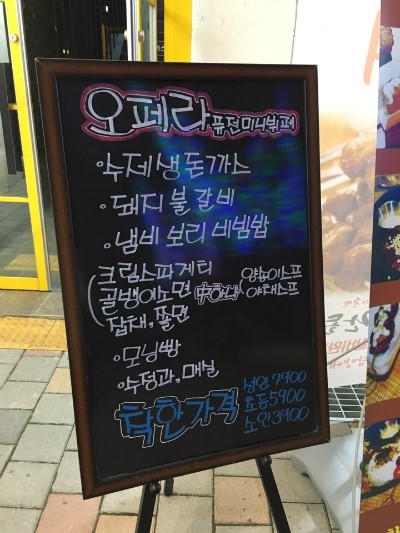 오페라 퓨전미니뷔페
수제생돈까스
돼지불갈비
냄비 보리 비빔밥
크림스파게티
골뱅이소면 中하나 양송이스프
잡채, 쫄면 야채스프
모닝빵
수정과, 매실
착한가격 성인 7900
초등 5900
노인 3900